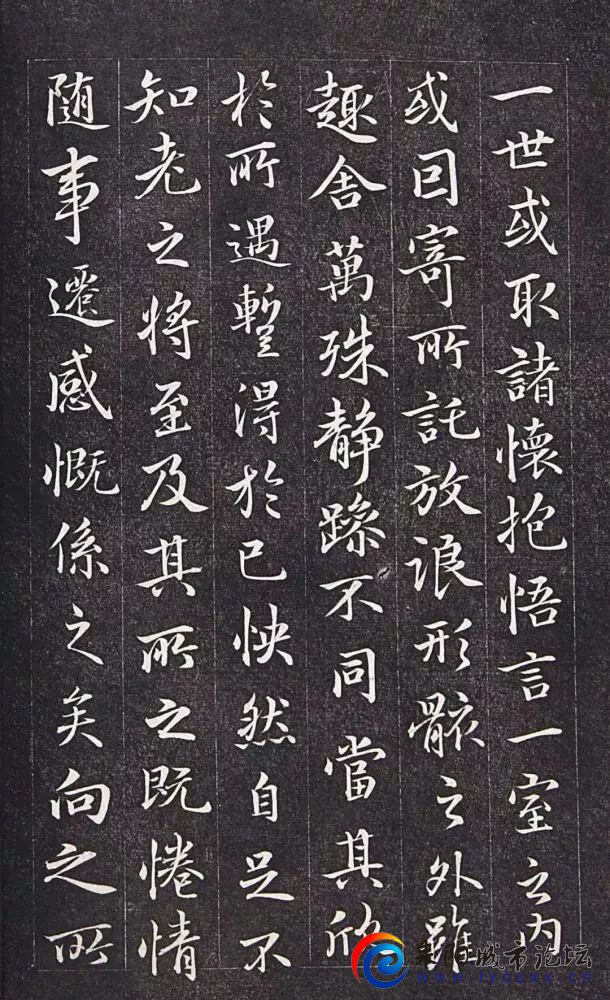 一世或取諸懷抱悟言一室之内
或因寄所託放浪形骸之外雖
趣舍萬殊静躁不同當其欣
於所遇暫得於己怏然自足不
知老之將至及其所之既惓情
随事遷感慨係之矣向之所
城市论坛